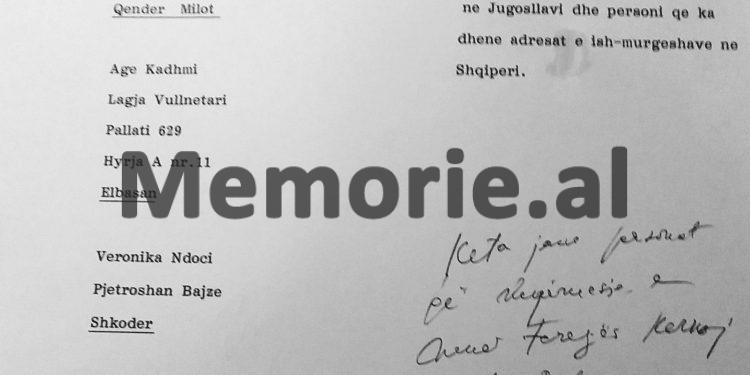 Qender Milot
Age Kadhmi
Lagja Vullnetari
Pallati 629
Hyrja A nr.11
Elbasan
Veronika Ndoci
Pjetroshan Bajze
Shkoder
ne Jugosllavi dhe personi qe ka
dhene adresat e ish-murgeshave ne
Shqiperi.
Keta jane personat
që e
Terezës kerkoj
Memorie.al